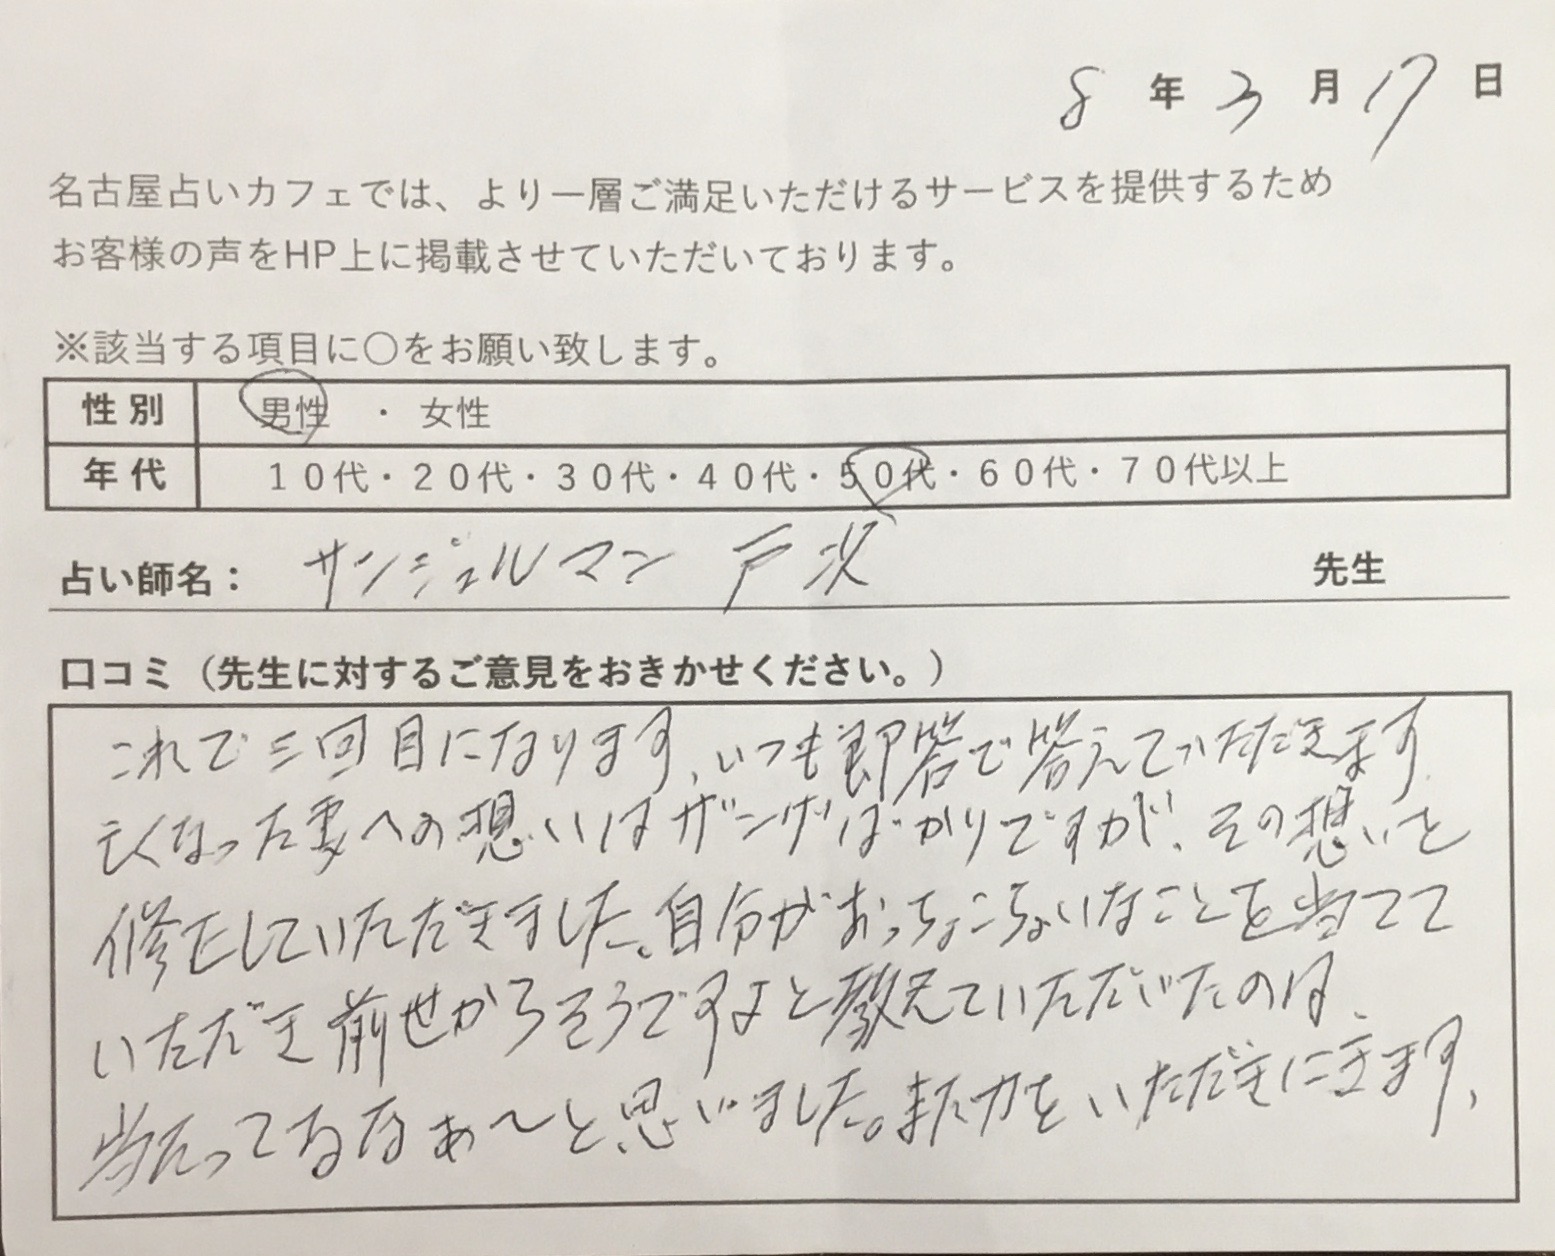 8年3月17日
名古屋占いカフェでは、より一層ご満足いただけるサービスを提供するため
お客様の声をHP上に掲載させていただいております。
※該当する項目に○をお願い致します。
性別 男性 ・ 女性
年代 10代・20代・30代・40代・50代・60代・70代以上
占い師名： サンジェルマン 戸次 先生
口コミ（先生に対するご意見をおきかせください。）
これで三回目になります、いつも即答で答えていただきます
亡くなった妻への想いはザンゲばかりですが、その想いを
修正していただきました。自分がおっちょこちょいなことを当てて
いただき前世からそうですよと教えていただいたのは
当たってるなぁ〜と思いました。また力をいただきにきます、